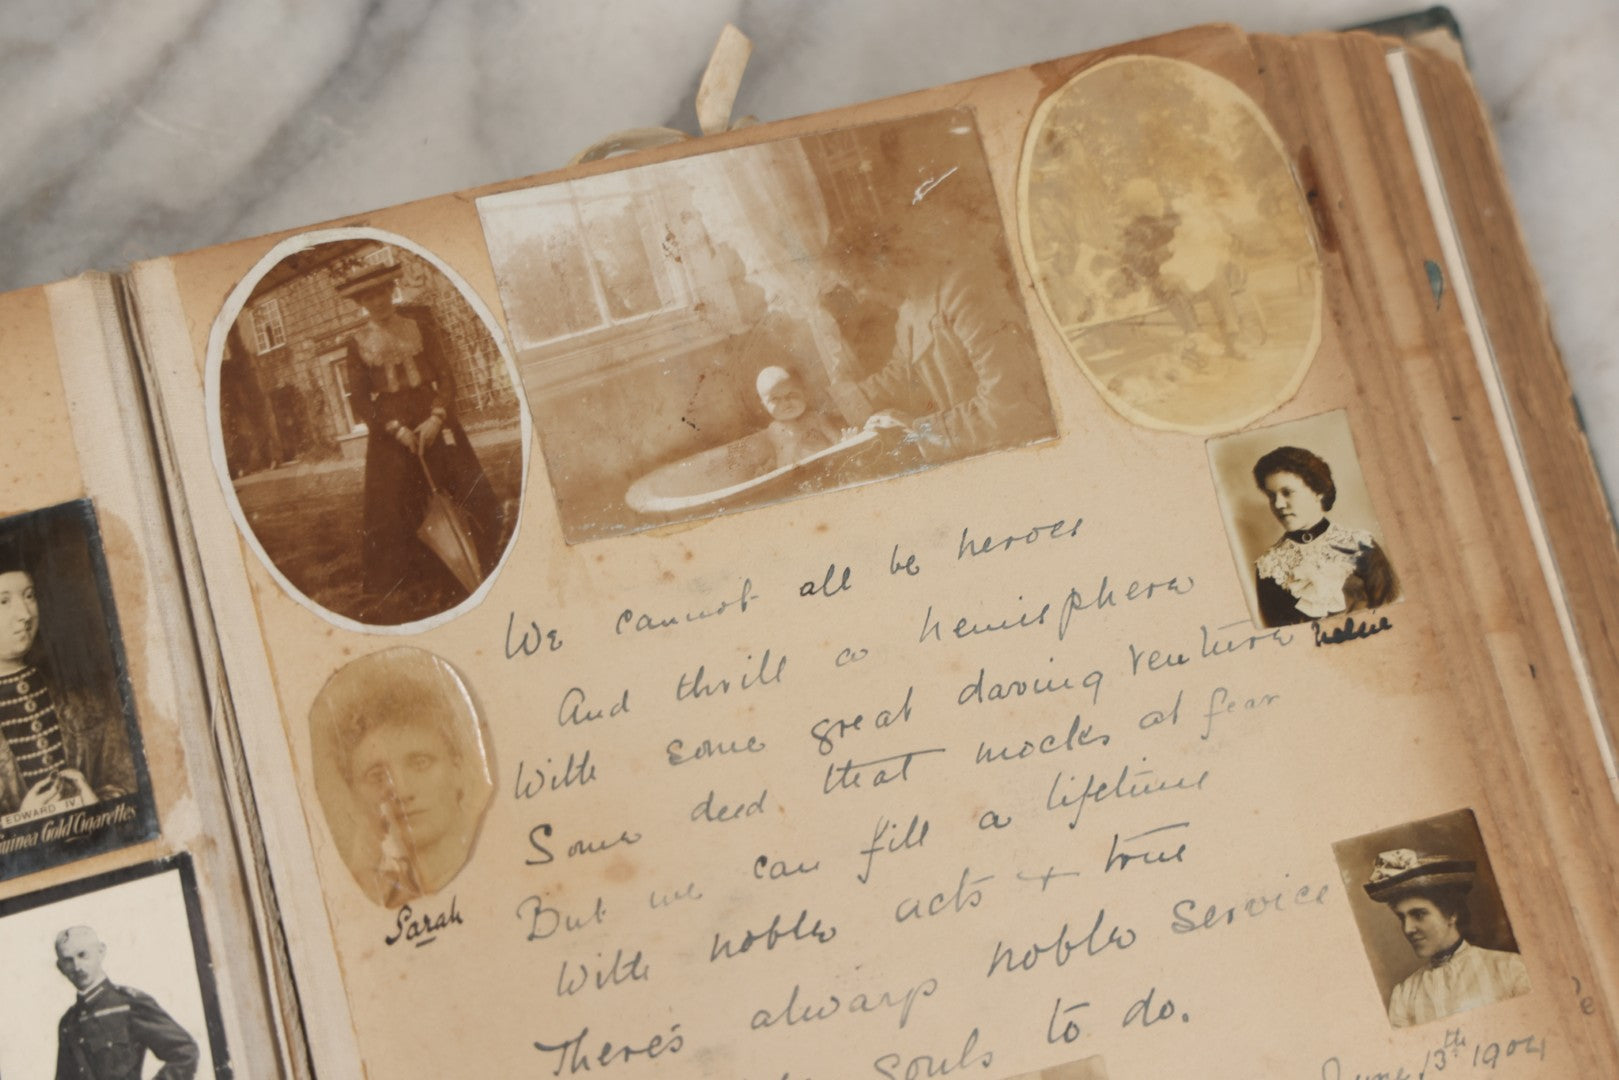 EDWARD IV.
Guinea Gold Cigarettes
Sarah
Nellie
We cannot all be heroes
And thrill a hemisphere
With some great daring venture
Some deed that mocks at fear
But we can fill a lifetime
With noble acts + true
There's always noble service
souls to do.
June 13th 1904